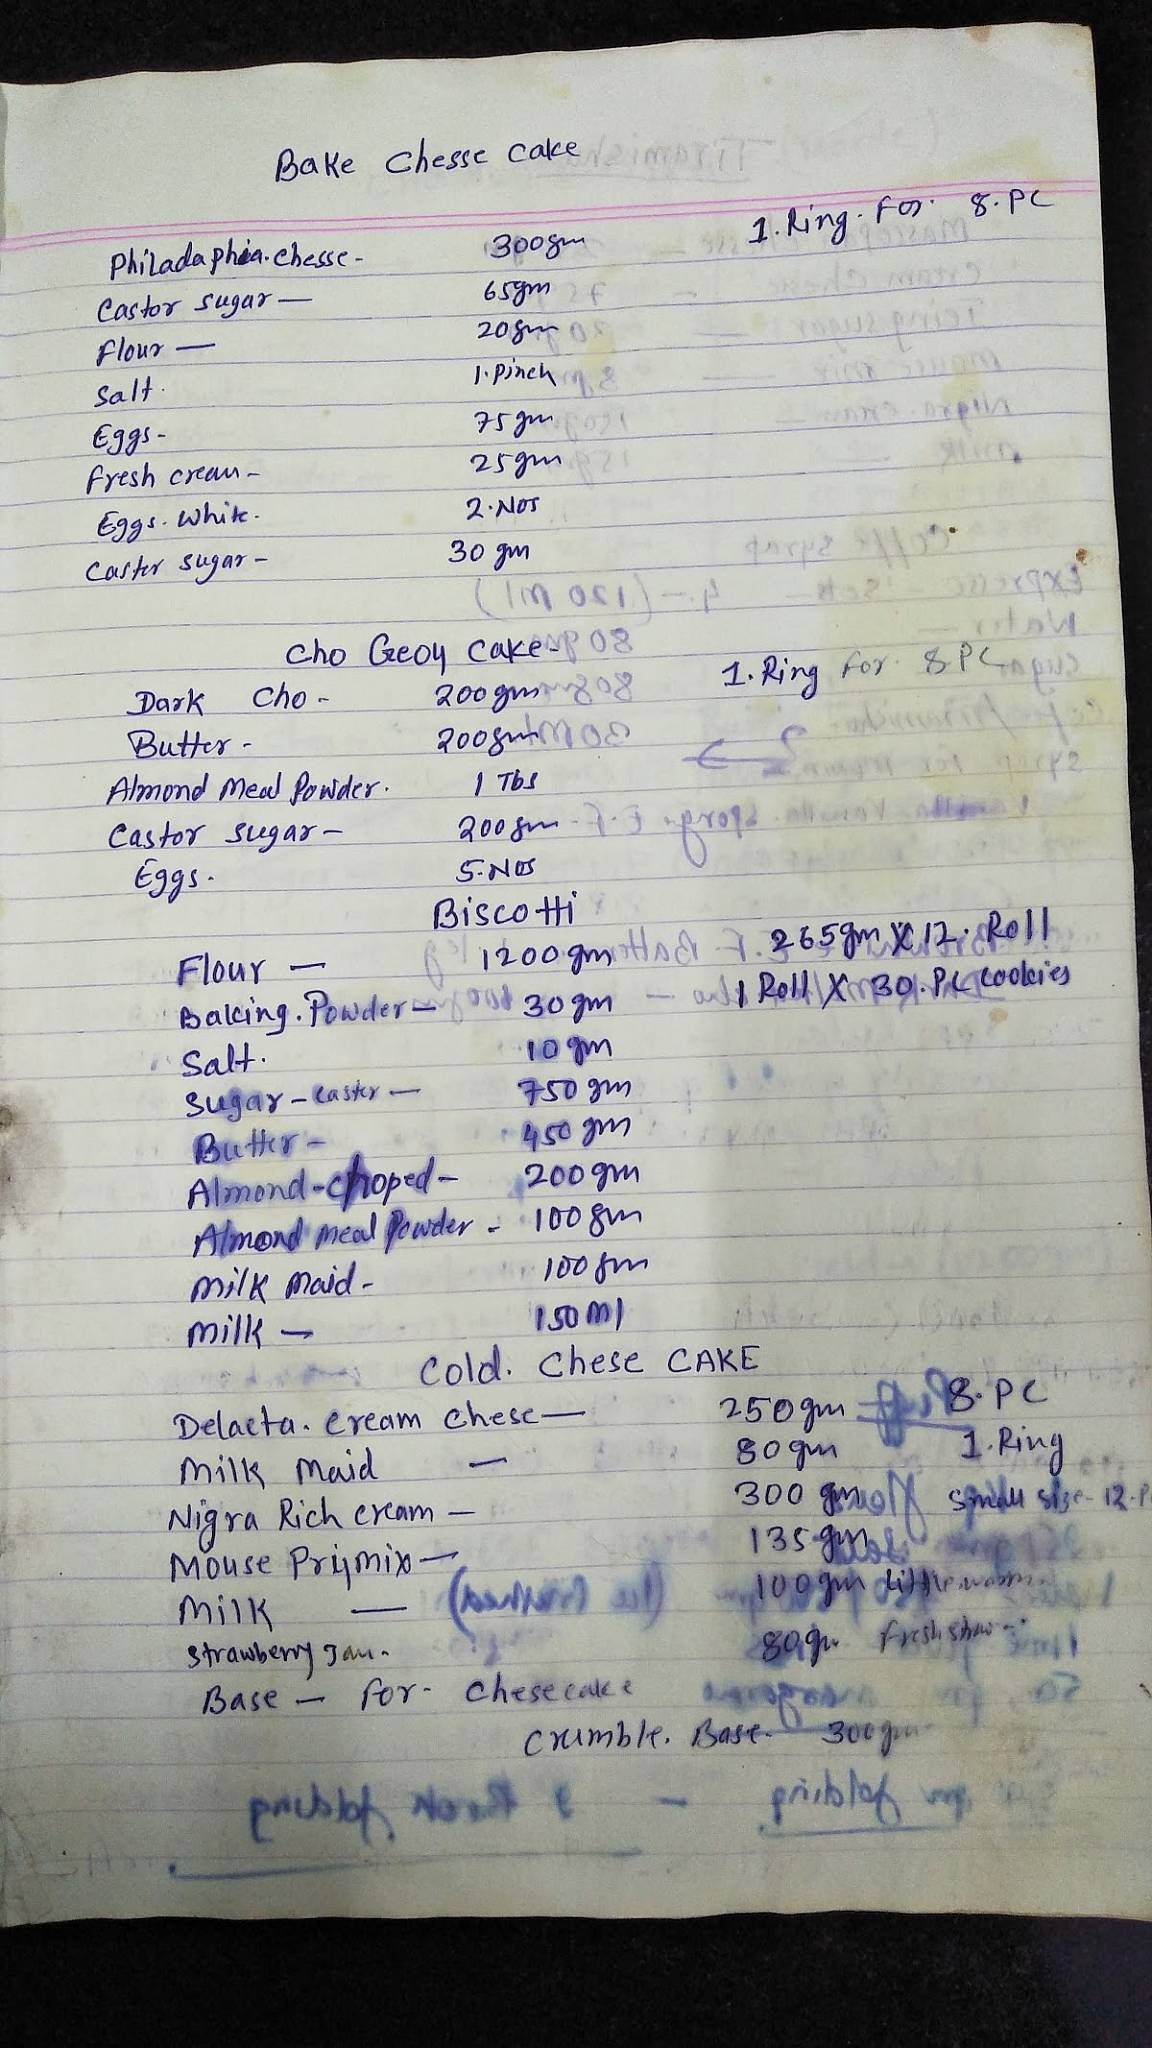 Bake Chesse Cake
1.Ring. For. 8.PC
Philadaphia.chesse- 300gm
Castor sugar— 65gm
Flour— 20gm
Salt. 1.Pinch
Eggs- 75gm
Fresh cream- 25gm
Eggs. White. 2.Nos
Caster sugar- 30gm
Cho Geoy Cake-
1.Ring For. 8PC
Dark Cho- 200gm
Butter- 200gm
Almond Meal Powder. 1 Tbs
Castor sugar- 200gm
Eggs. 5.Nos
Biscotti
Flour — 1200gm 265gm X 12. Roll
Baking.Powder— 30gm 1 Roll X 30.PC Cookies
Salt. 10gm
Sugar-caster— 750gm
Butter- 450gm
Almond-choped- 200gm
Almond meal Powder- 100gm
Milk Maid- 100gm
Milk — 150Ml
Cold. Chese CAKE
Delaeta. Cream Chese— 250gm 8.PC
Milk Maid — 80gm 1.Ring
Nigra Rich cream — 300gm Small size-12.P
Mouse Prijmix— 135gm
Milk — 100gm Little warm.
Strawberry Jam. 80gm Fresh
Base — For- Chesecake
Crumble. Base- 300gm